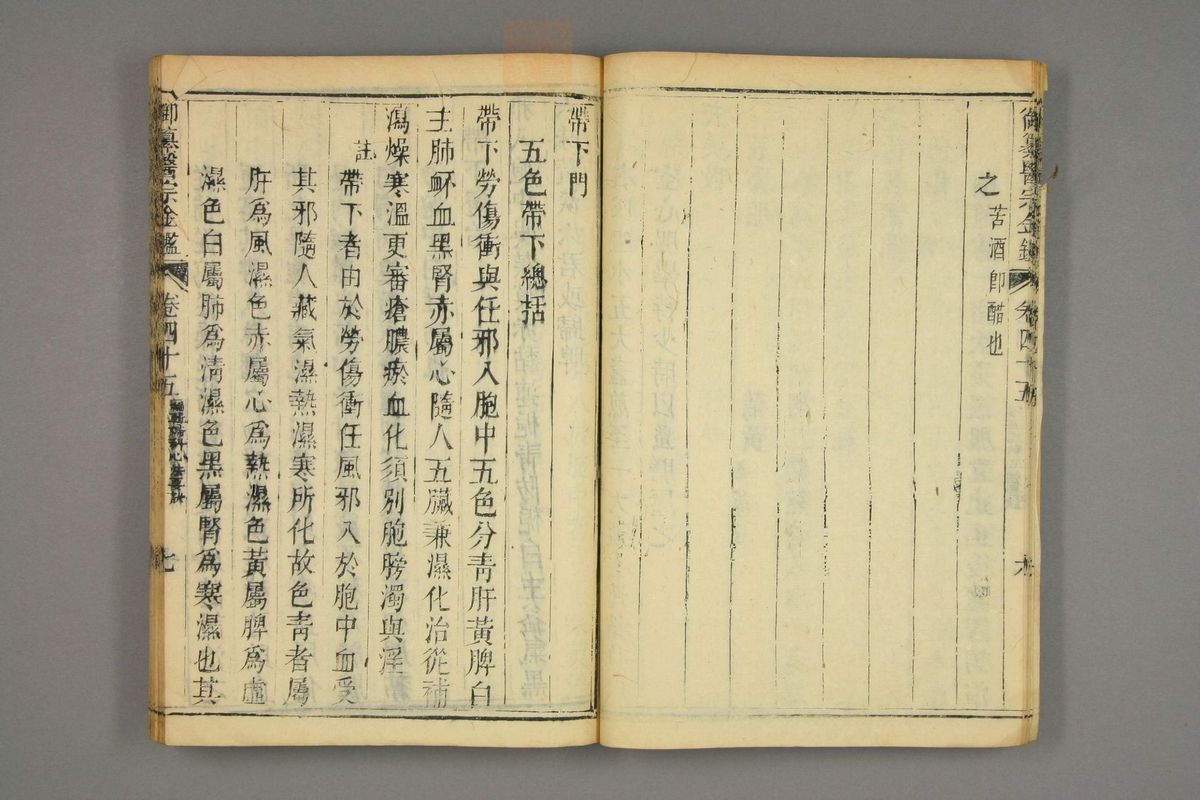 御纂醫宗金鑑
卷四十五
六
之苦酒即醋也
帶下門
五色帶下總括
帶下勞傷衝與任邪入胞中五色分青肝黃脾白
主肺衃血黑腎赤屬心隨人五臟兼濕化治從補
瀉燥寒溫更審瘡膿瘀血化須別胞膀濁與淫
註
帶下者由於勞傷衝任風邪入於胞中血受
其邪隨人藏氣濕熱濕寒所化故色青者屬
肝為風濕色赤屬心為熱濕色黃屬脾為虛
濕色白屬肺為清濕色黑屬腎為寒濕也其
御纂醫宗金鑑
卷四十五
編輯婦科心法要訣
七